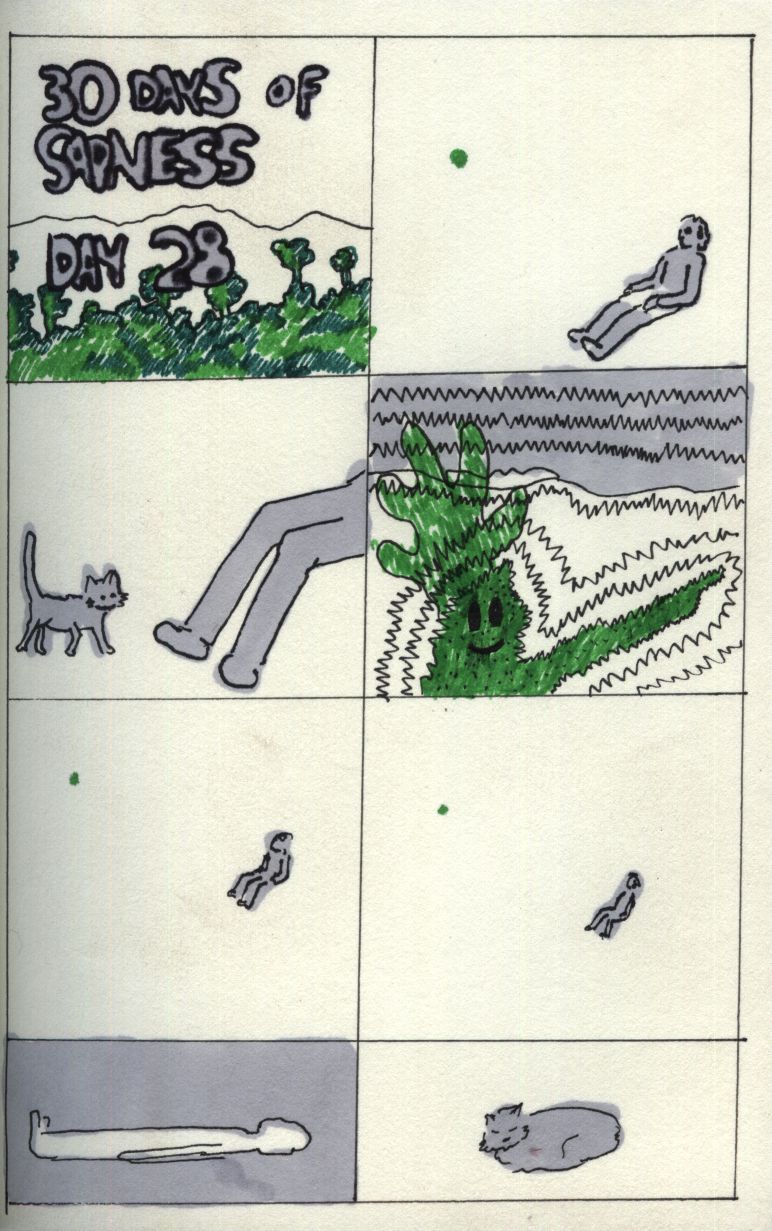 30 DAYS OF
SADNESS
DAY 28